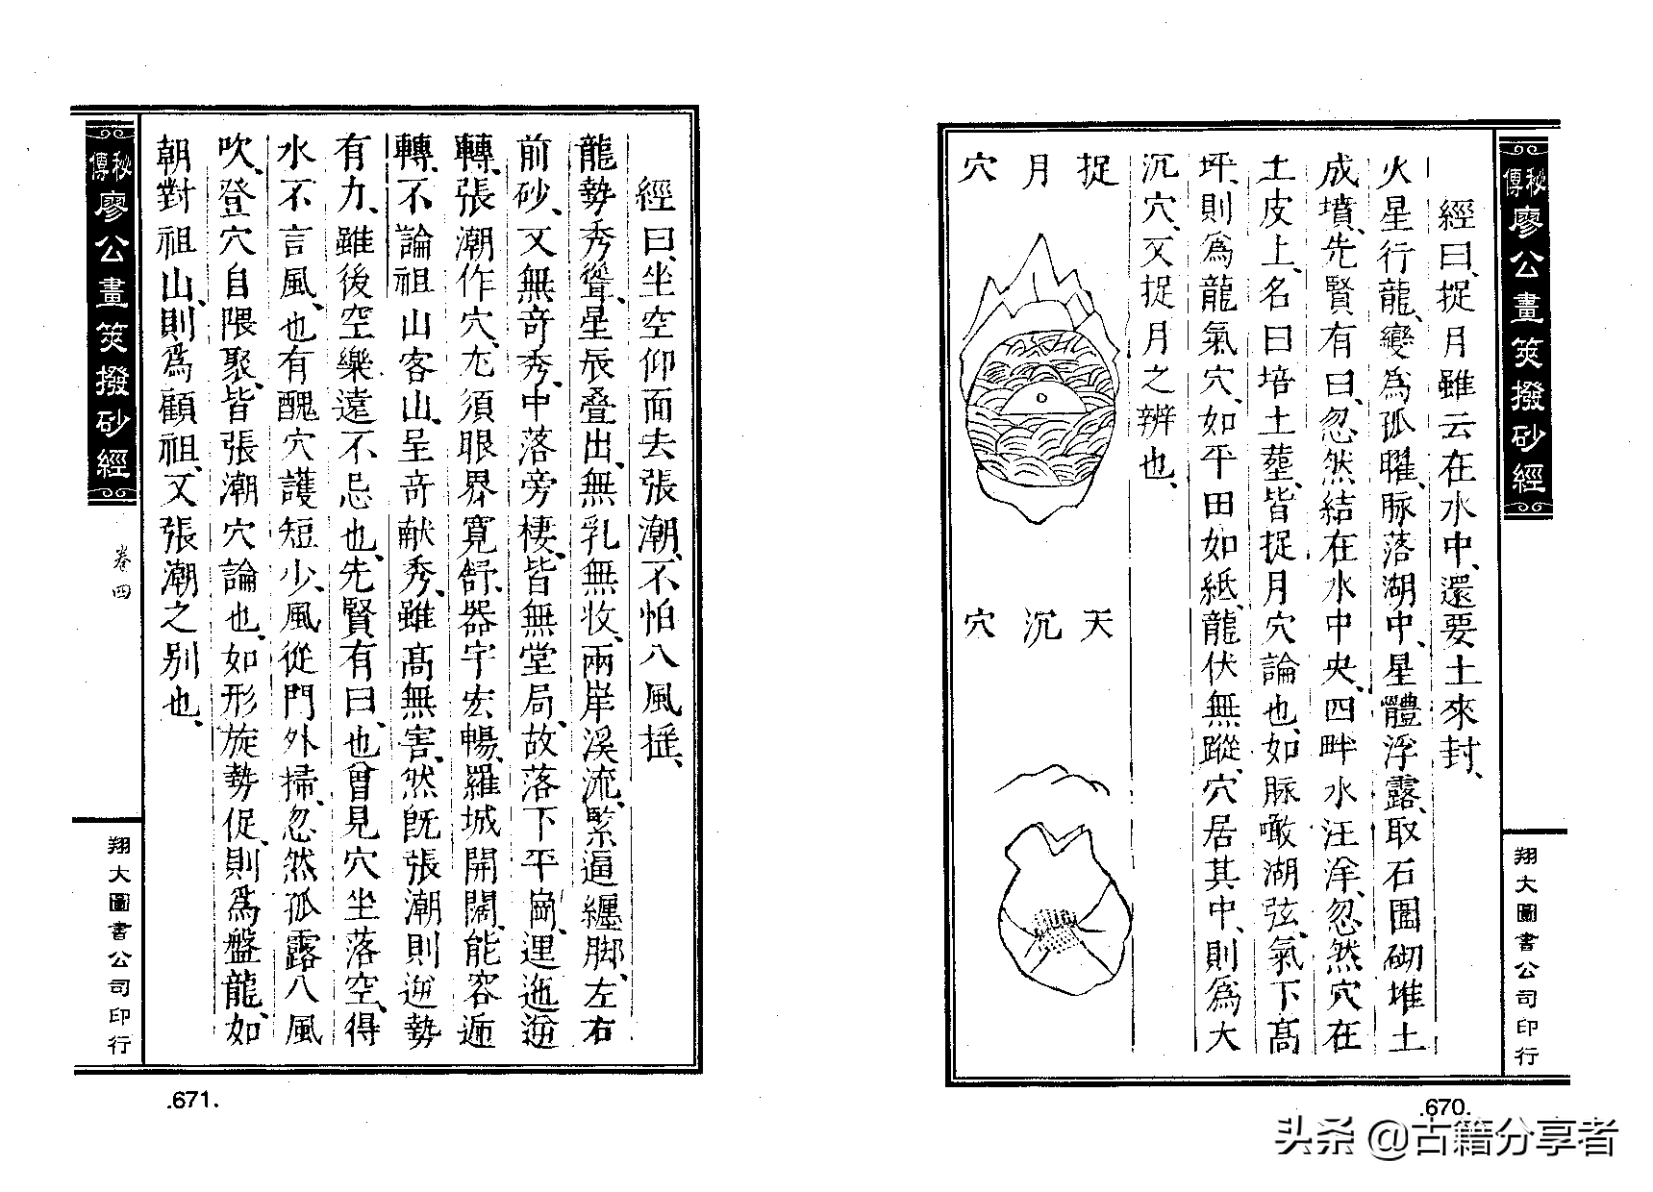 秘傳廖公畫筴撥砂經
經曰、捉月雖云在水中、還要土來封、
火星行龍、變為孤曜、脉落湖中、星體浮露、取石圍砌堆土
成墳、先賢有曰、忽然結在水中央、四畔水汪洋、忽然穴在
土皮上、名曰培土塟、皆捉月穴論也、如脉瞰湖弦、氣下高
坪、則為龍氣穴、如平田如紙、龍伏無蹤、穴居其中、則為大
沉穴、又捉月之辨也、
捉月穴
天沉穴
翔大圖書公司印行
.670.
經曰、坐空仰面去張潮、不怕八風搖、
龍勢秀聳、星辰叠出、無乳無收、兩岸溪流、緊逼纏脚、左右
前砂、又無奇秀、中落旁棲、皆無堂局、故落下平崗、迤逦
轉、張潮作穴、尤須眼界寬舒、器宇宏暢、羅城開闊、能容
轉、不論祖山客山、呈奇献秀、雖高無害、然既張潮則逆勢
有力、雖後空樂遠不忌也、先賢有曰、也曾見穴坐落空、得
水不言風、也有醜穴護短少、風從門外掃、忽然孤露八風
吹、登穴自隈聚、皆張潮穴論也、如形旋勢促、則為盤龍、如
朝對祖山、則為顧祖、又張潮之別也、
秘傳廖公畫筴撥砂經
卷四
翔大圖書公司印行
.671.
头条 @古籍分享者